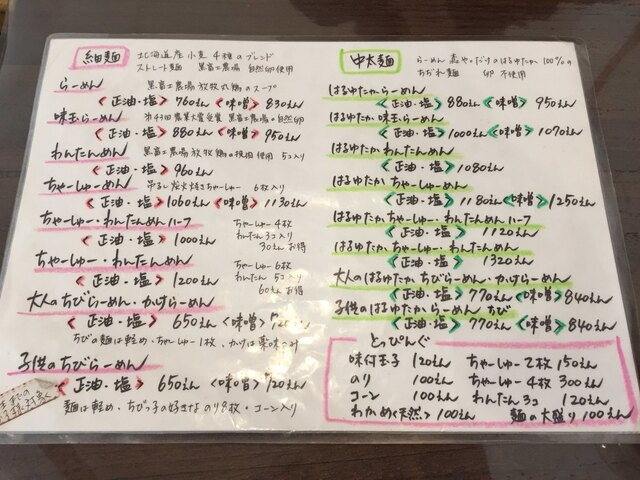 細麺 北海道産 小麦 4種のブレンド
ストレート麺 黒富士農場 自然卵使用
らーめん 黒富士農場 放牧鶏のスープ
<正油・塩> 760えん <味噌> 830えん
味玉らーめん 黒富士農場の自然卵
<正油・塩> 880えん <味噌> 950えん
わんたんめん 黒富士農場 放牧鶏の 使用 5コ入り
<正油・塩> 960えん
ちゃーしゅーめん 吊るし炭火焼きちゃーしゅー 6枚入り
<正油・塩> 1060えん <味噌> 1130えん
ちゃーしゅー・わんたんめん ハーフ ちゃーしゅー4枚
わんたん3コ入り
<正油・塩> 1000えん 30えんお得
ちゃーしゅー・わんたんめん ちゃーしゅー6枚
わんたん5コ入り
<正油・塩> 1200えん 60えんお得
大人のちびらーめん・かけらーめん
<正油・塩> 650えん <味噌>
ちびの麺は軽め・ちゃーしゅー1枚、かけは薬味のみ
子供のちびらーめん
<正油・塩> 650えん <味噌> 720えん
麺は軽め・ちびっ子の好きな のり8枚・コーン入り
中太麺 らーめん 森やだけのはるゆたか 100%の
ちぢれ麺 卵 不使用
はるゆたからーめん
<正油・塩> 880えん <味噌> 950えん
はるゆたか 味玉らーめん
<正油・塩> 1000えん <味噌> 1070えん
はるゆたか わんたんめん
<正油・塩> 1080えん
はるゆたか ちゃーしゅーめん
<正油・塩> 1180えん <味噌> 1250えん
はるゆたか ちゃーしゅー・わんたんめん ハーフ
<正油・塩> 1120えん
はるゆたか ちゃーしゅー・わんたんめん
<正油・塩> 1320えん
大人のはるゆたか ちびらーめん・かけらーめん
<正油・塩> 770えん <味噌> 840えん
子供のはるゆたからーめん ちび
<正油・塩> 770えん <味噌> 840えん
とっぴんぐ
味付玉子 120えん ちゃーしゅー2枚 150えん
のり 100えん ちゃーしゅー4枚 300えん
コーン 100えん わんたん3コ 120えん
わかめ<天然> 100えん 麺の大盛り 100えん